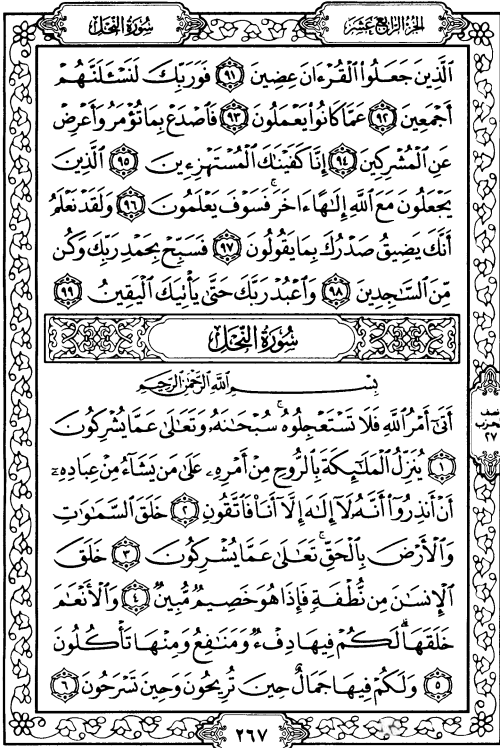 الجزء الرابع عشر
سورة النحل
الَّذِينَ جَعَلُوا الْقُرْءَانَ عِضِينَ ٩١ فَوَرَبِّكَ لَنَسْـَٔلَنَّهُمْ
أَجْمَعِينَ ٩٢ عَمَّا كَانُوا يَعْمَلُونَ ٩٣ فَاصْدَعْ بِمَا تُؤْمَرُ وَأَعْرِضْ
عَنِ الْمُشْرِكِينَ ٩٤ إِنَّا كَفَيْنَاكَ الْمُسْتَهْزِءِينَ ٩٥ الَّذِينَ
يَجْعَلُونَ مَعَ اللَّهِ إِلَٰهًا ءَاخَرَ ۚ فَسَوْفَ يَعْلَمُونَ ٩٦ وَلَقَدْ نَعْلَمُ
أَنَّكَ يَضِيقُ صَدْرُكَ بِمَا يَقُولُونَ ٩٧ فَسَبِّحْ بِحَمْدِ رَبِّكَ وَكُن
مِّنَ السَّاجِدِينَ ٩٨ وَاعْبُدْ رَبَّكَ حَتَّىٰ يَأْتِيَكَ الْيَقِينُ ٩٩
سورة النحل
بِسْمِ اللَّهِ الرَّحْمَٰنِ الرَّحِيمِ
أَتَىٰٓ أَمْرُ اللَّهِ فَلَا تَسْتَعْجِلُوهُ ۚ سُبْحَانَهُ وَتَعَالَىٰ عَمَّا يُشْرِكُونَ
١ يُنَزِّلُ الْمَلَائِكَةَ بِالرُّوحِ مِنْ أَمْرِهِۦ عَلَىٰ مَن يَشَاءُ مِنْ عِبَادِهِۦٓ
أَنْ أَنذِرُوٓا أَنَّهُۥ لَآ إِلَٰهَ إِلَّآ أَنَا۠ فَاتَّقُونِ ٢ خَلَقَ السَّمَاوَاتِ
وَالْأَرْضَ بِالْحَقِّ ۚ تَعَالَىٰ عَمَّا يُشْرِكُونَ ٣ خَلَقَ
الْإِنسَانَ مِن نُّطْفَةٍ فَإِذَا هُوَ خَصِيمٌ مُّبِينٌ ٤ وَالْأَنْعَامَ
خَلَقَهَا ۗ لَكُمْ فِيهَا دِفْءٌ وَمَنَافِعُ وَمِنْهَا تَأْكُلُونَ
٥ وَلَكُمْ فِيهَا جَمَالٌ حِينَ تُرِيحُونَ وَحِينَ تَسْرَحُونَ ٦
نصف
الحزب
٢٧
٢٦٧